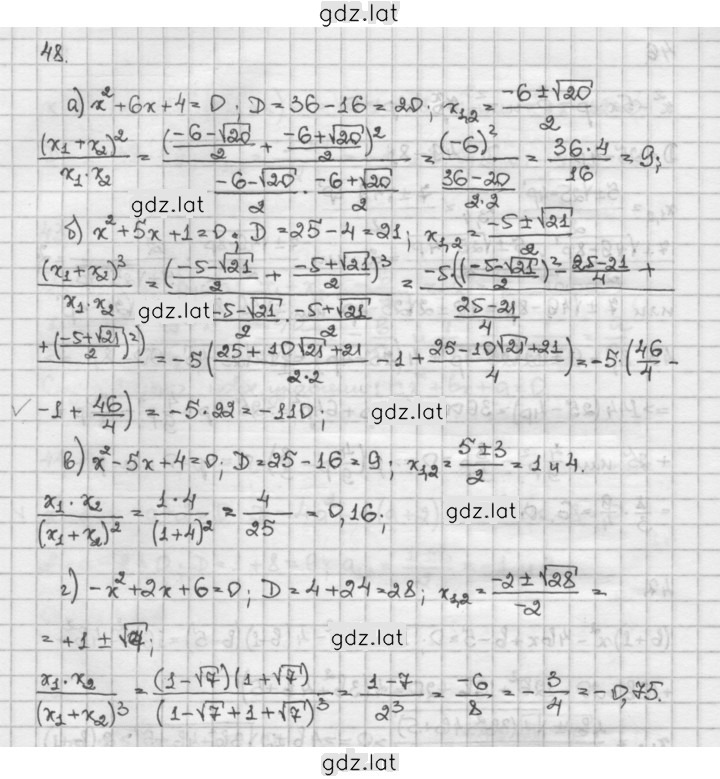 gdz.lat
48.
а) x²+6x+4=0; D=36-16=20; x₁,₂=(-6±√20)/2
(x₁+x₂)²/(x₁·x₂) = ((-6-√20)/2 + (-6+√20)/2)²/((-6-√20)/2 · (-6+√20)/2) = (-6)²/((36-20)/(2·2)) = (36·4)/16 = 9;
gdz.lat
б) x²+5x+1=0; D=25-4=21; x₁,₂=(-5±√21)/2
(x₁+x₂)³/(x₁·x₂) = ((-5-√21)/2 + (-5+√21)/2)³/((-5-√21)/2 · (-5+√21)/2) = -5·(((-5-√21)/2)² - (25-21)/4 +/((25-21)/4)
gdz.lat
+((-5+√21)/2)²) = -5((25+10√21+21)/(2·2) - 1 + (25-10√21+21)/4) = -5·(46/4 -
-1 + 46/4) = -5·22 = -110;
gdz.lat
в) x²-5x+4=0; D=25-16=9; x₁,₂=(5±3)/2 = 1 и 4.
(x₁·x₂)/(x₁+x₂)² = (1·4)/(1+4)² = 4/25 = 0,16;
gdz.lat
г) -x²+2x+6=0; D=4+24=28; x₁,₂=(-2±√28)/-2 =
= +1 ± √7;
gdz.lat
(x₁·x₂)/(x₁+x₂)³ = ((1-√7)(1+√7))/(1-√7+1+√7)³ = (1-7)/2³ = -6/8 = -3/4 = -0,75.
gdz.lat